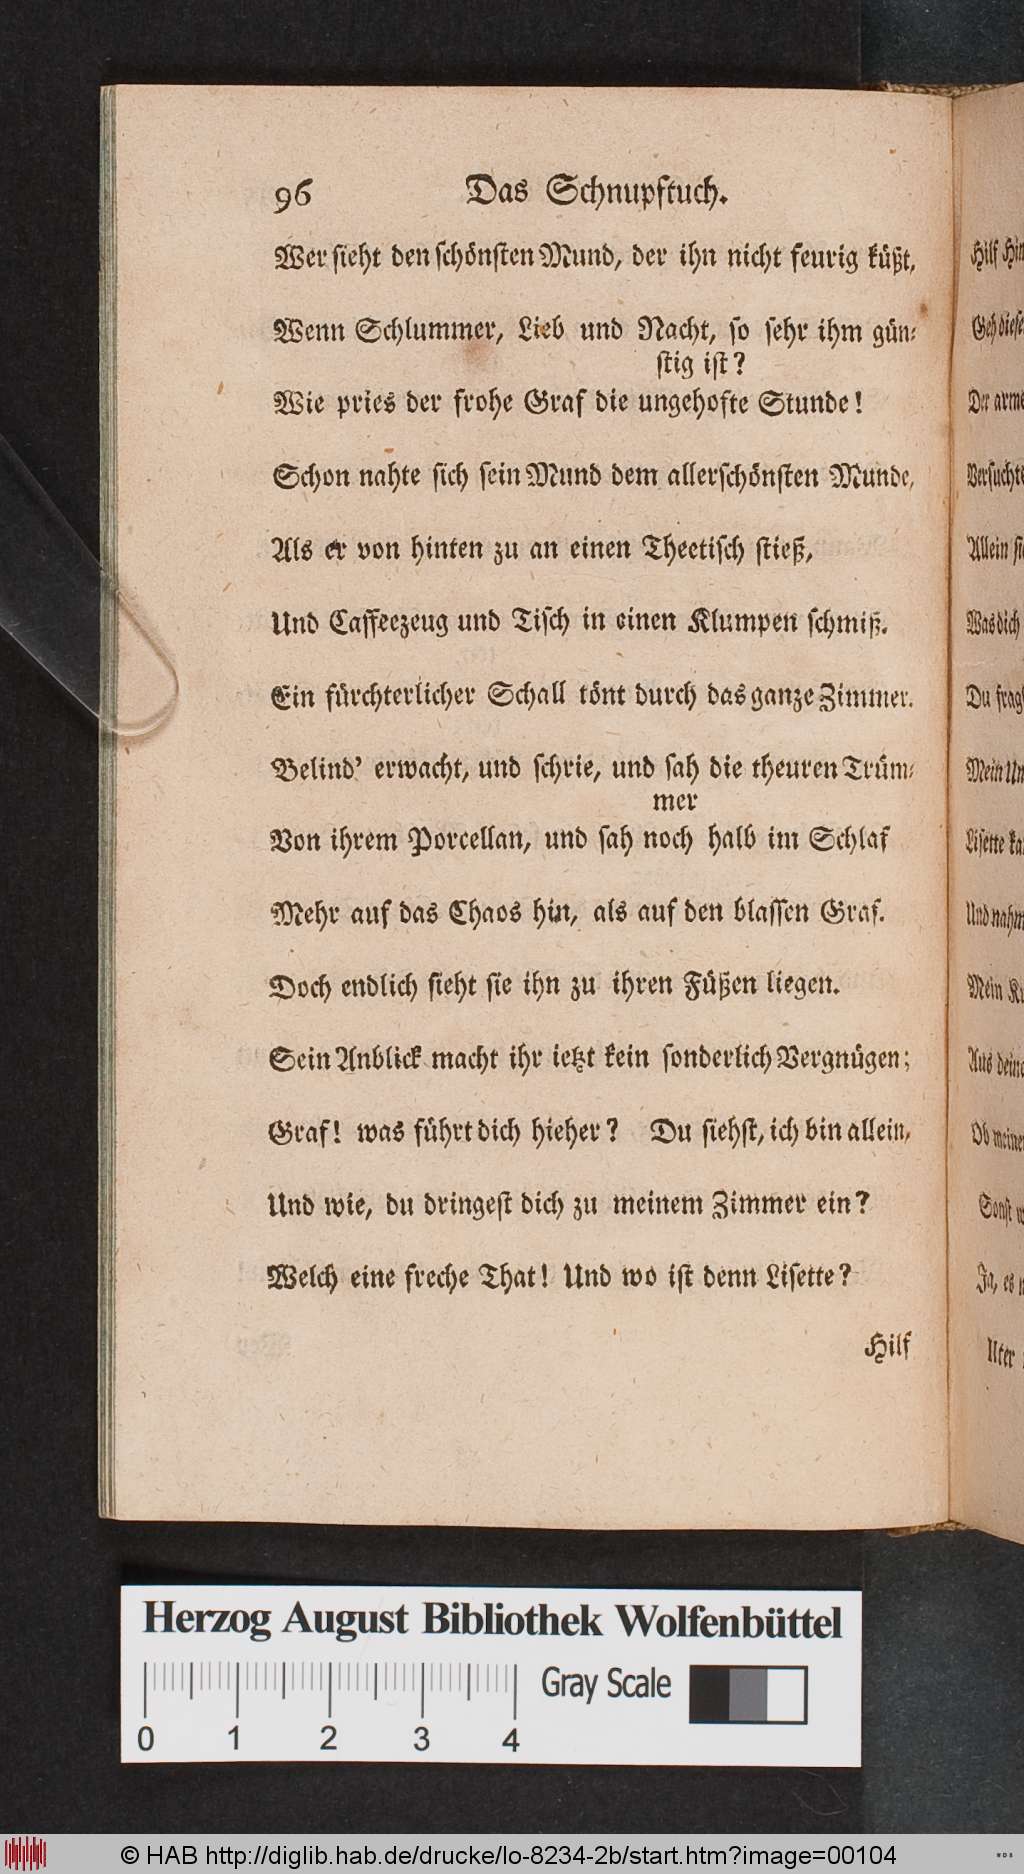 96 Das Schnupftuch.
Wer sieht den schönsten Mund, der ihn nicht feurig küßt,
Wenn Schlummer, Lieb und Nacht, so sehr ihm gün-
stig ist?
Wie pries der frohe Graf die ungehofte Stunde!
Schon nahte sich sein Mund dem allerschönsten Munde,
Als er von hinten zu an einen Theetisch stieß,
Und Caffeezeug und Tisch in einen Klumpen schmiß.
Ein fürchterlicher Schall tönt durch das ganze Zimmer.
Belind' erwacht, und schrie, und sah die theuren Trüm-
mer
Von ihrem Porcellan, und sah noch halb im Schlaf
Mehr auf das Chaos hin, als auf den blassen Graf.
Doch endlich sieht sie ihn zu ihren Füßen liegen.
Sein Anblick macht ihr ietzt kein sonderlich Vergnügen;
Graf! was führt dich hieher? Du siehst, ich bin allein,
Und wie, du dringest dich zu meinem Zimmer ein?
Welch eine freche That! Und wo ist denn Lisette?
Hilf
Hilf
Geh diese
Der arme
Versuchte
Allein
Was dich
Du
Mein
Lisette
Und nahm
Mein
Aus
Ob meine
Sonst
Ja, es
Herzog August Bibliothek Wolfenbüttel
Gray Scale
0 1 2 3 4
© HAB http://diglib.hab.de/drucke/lo-8234-2b/start.htm?image=00104